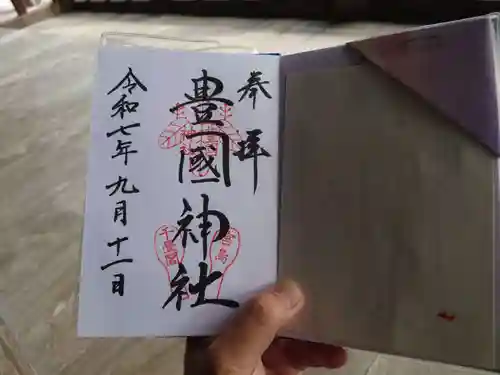 奉拝
豊國神社
千畳閣
宮島
令和七年九月十一日